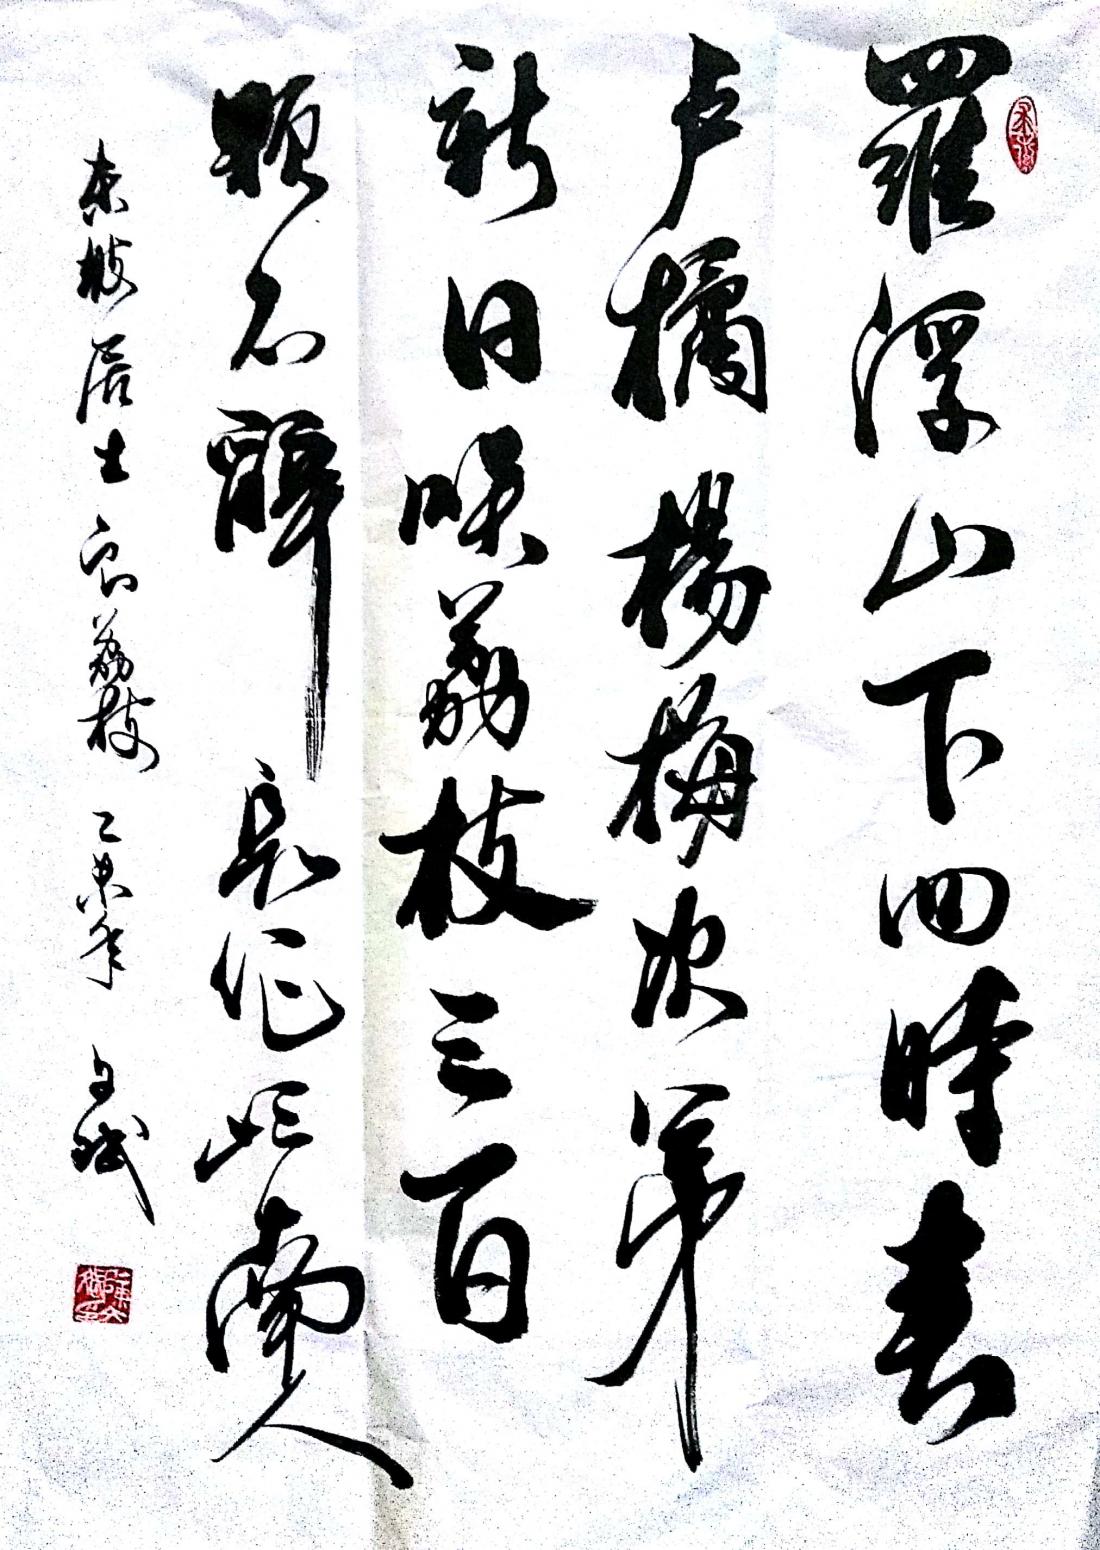 羅浮山下四時春
卢橘楊梅次第
新日啖荔枝三百
顆不辭長作岭南人
东坡居士食荔枝 乙未年 文斌